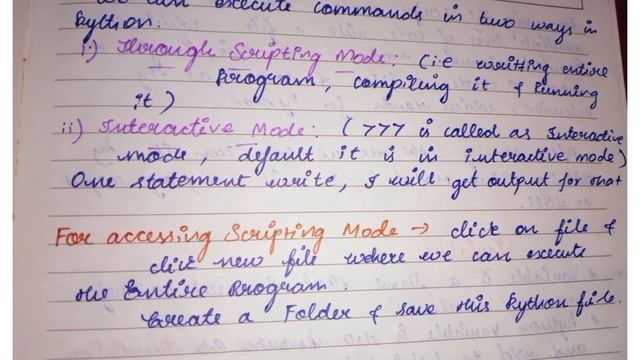 can execute commands in two ways in
Python.
i.) Through Scripting Mode: (i.e writting entire
Program, compiling it & Running
it)
ii) Interactive Mode: (777 is called as Interactive
mode, default it is in interactive mode)
One statement write, I will get output for that
For accessing Scripting Mode → click on file &
click new file where we can execute
the Entire Program
Create a Folder & save this Python file.